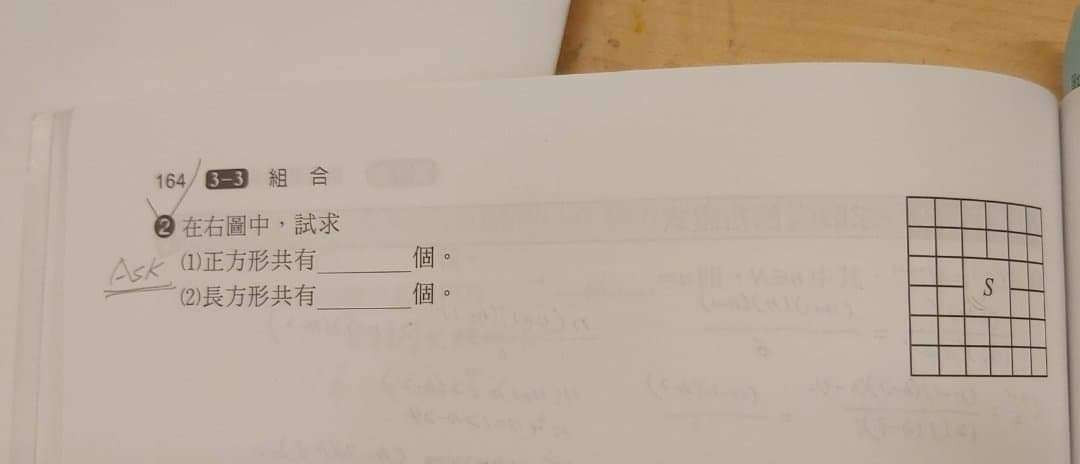 164 3-3 組合
2 在右圖中，試求
Ask (1)正方形共有______個。
(2)長方形共有______個。
S